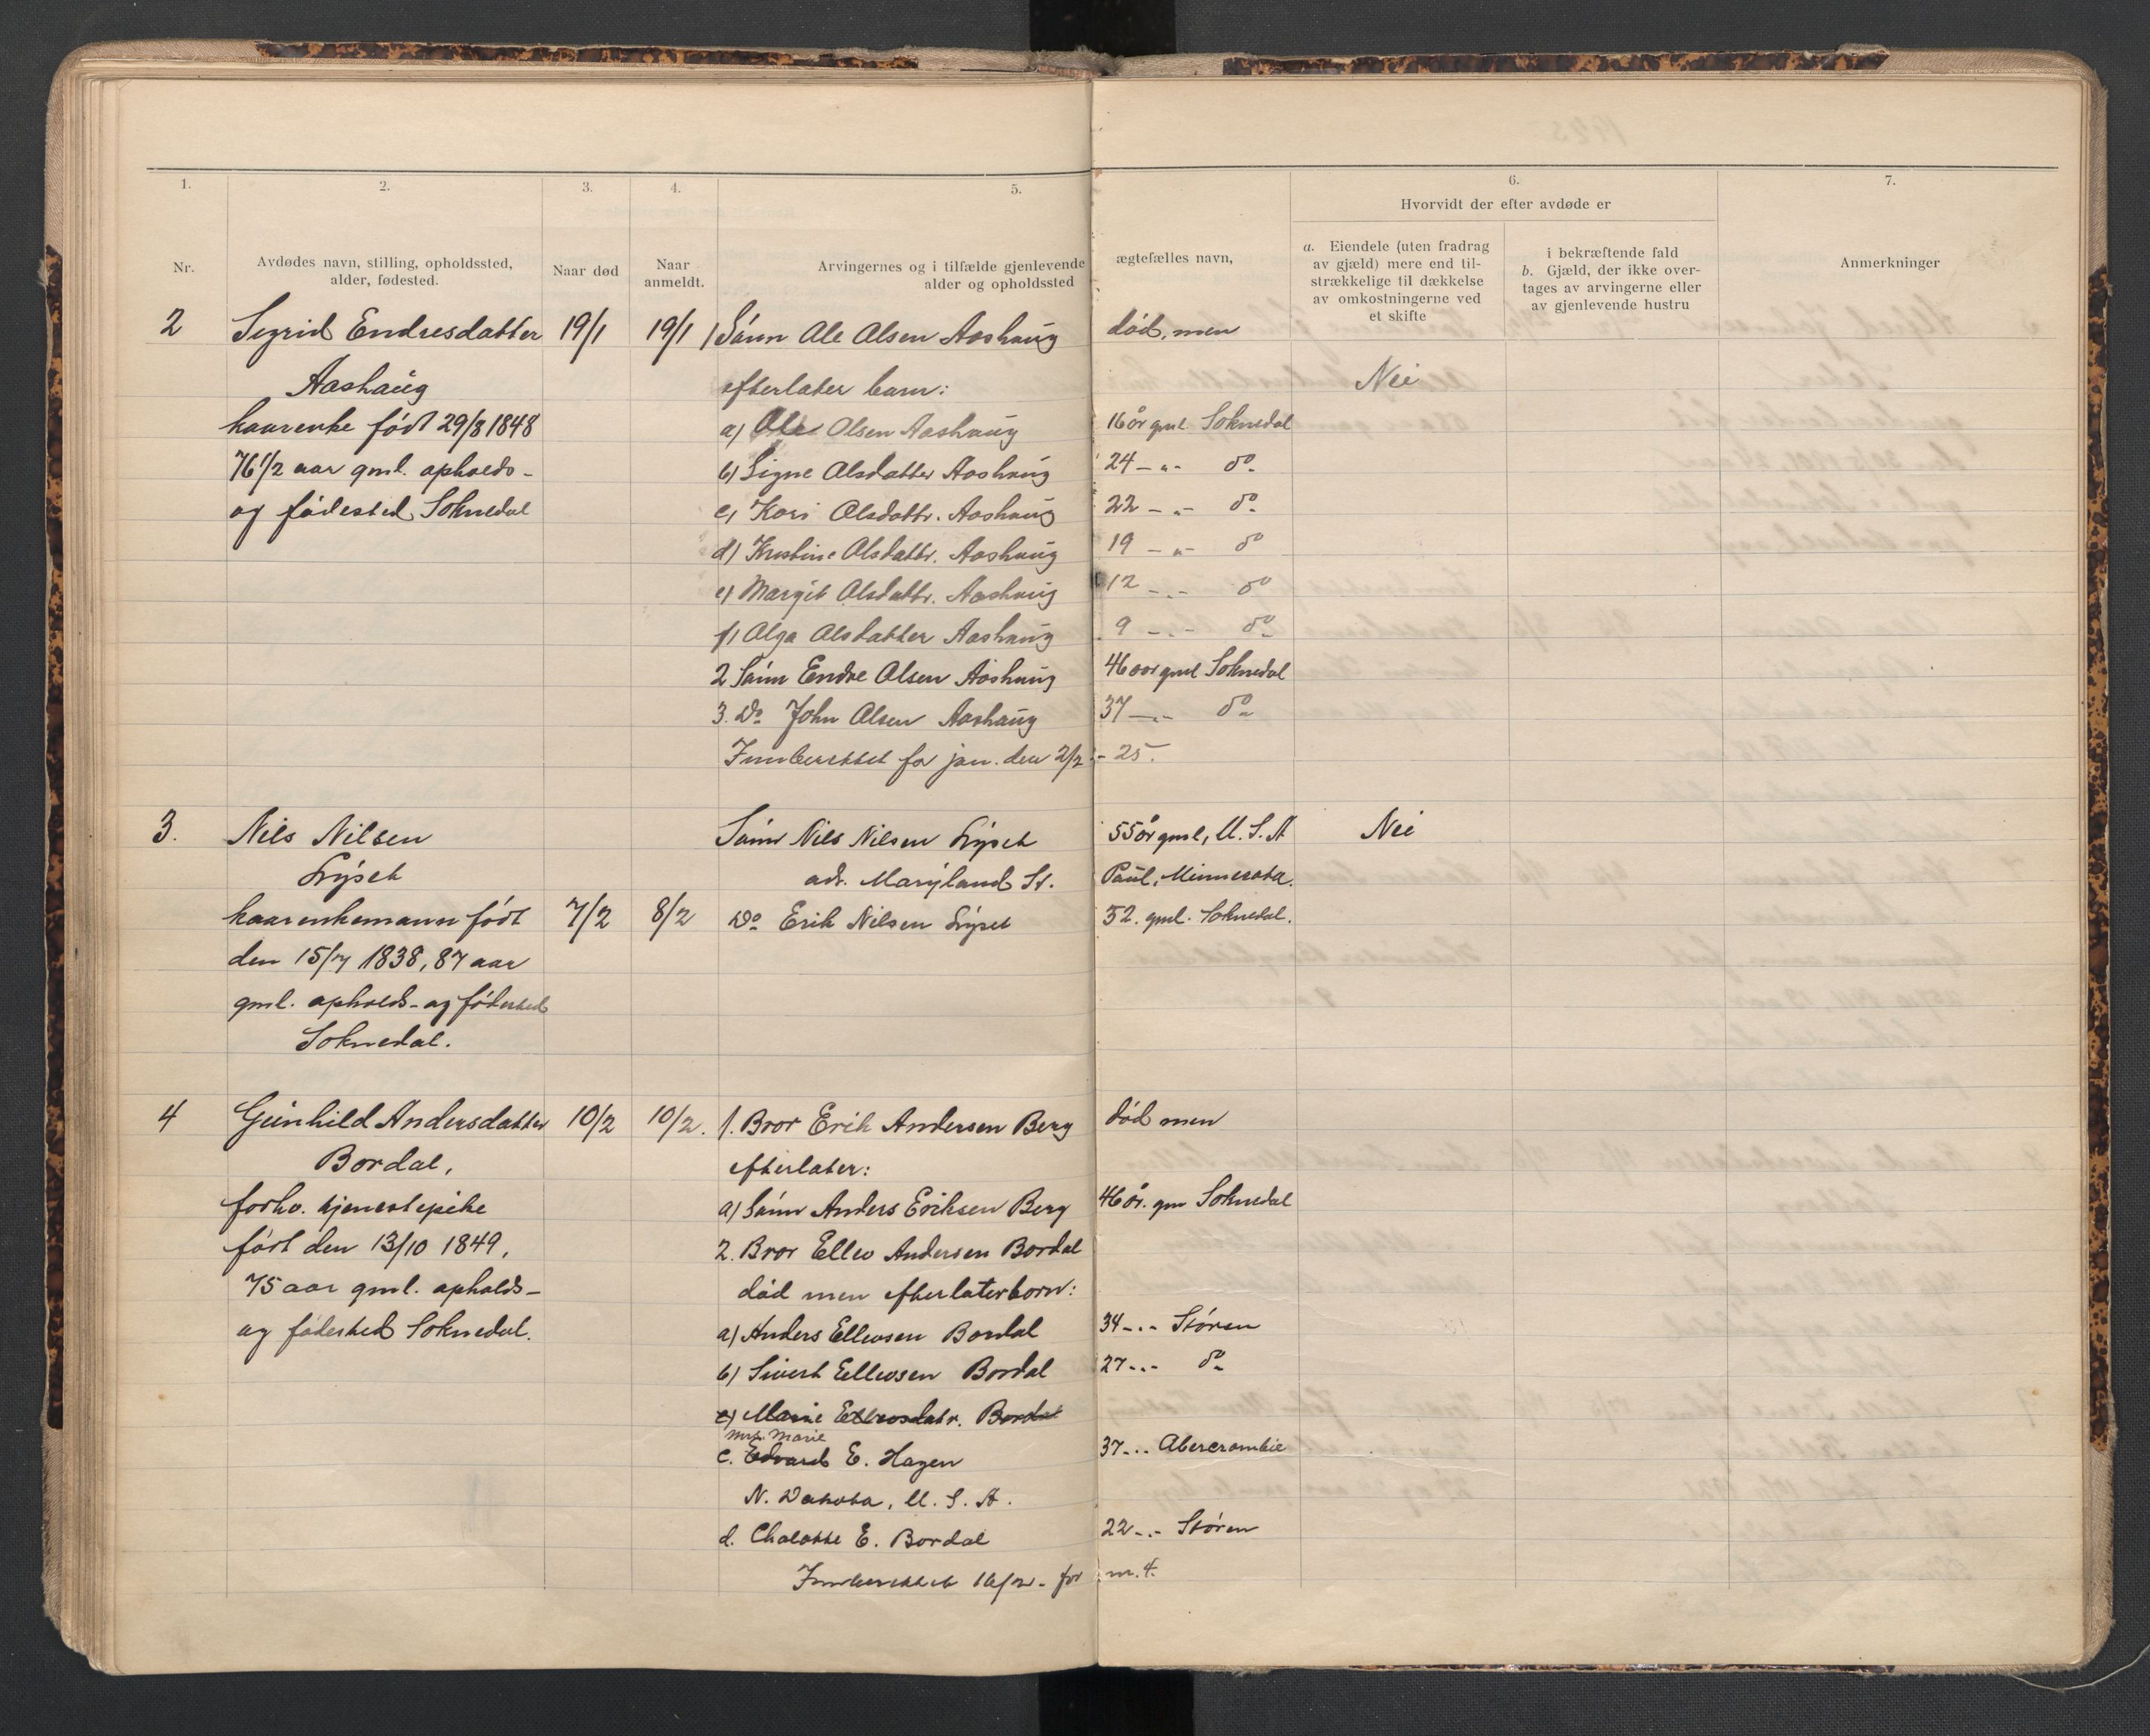 1.
2.
3.
4.
5.
6.
7.
Hvorvidt der efter avdøde er
Nr.
Avdødes navn, stilling, opholdssted,
alder, fødested.
Naar død
Naar
anmeldt.
Arvingernes og i tilfælde gjenlevende ægtefælles navn,
alder og opholdssted
a. Eiendele (uten fradrag
av gjæld) mere end til-
strækkelige til dækkelse
av omkostningerne ved
et skifte
i bekræftende fald
b. Gjæld, der ikke over-
tages av arvingerne eller
av gjenlevende hustru
Anmerkninger
2 Sigrid Endresdatter 19/1 19/1 1 Sønn Ole Olsen Aashaug død, men
Aashaug efterlater barn: Nei
kaarenke født 29/8 1848 a) Ole Olsen Aashaug 16 år gml. Soknedal
76 1/2 aar gml. opholds- b) Signe Olsdatter Aashaug 24 -"- do
og fødested Soknedal c) Kari Olsdattr. Aashaug 22 -"- do
d) Kristine Olsdattr. Aashaug 19 -"- do
e) Margit Olsdattr. Aashaug 12 -"- do
f) Olga Olsdatter Aashaug 9 -"- do
2 Sønn Endre Olsen Aashaug 46 aar gml Soknedal
3. Do John Olsen Aashaug 37 -"- do
Innberettet for jan. den 2/2 - 25.
3. Nils Nilsen Sønn Nils Nilsen Lyset 55 år gml, U.S.A Nei
Lyset adr. Maryland St. Paul, Minnesota.
kaarenkemann født 7/2 8/2 Do Erik Nilsen Lyset 52. gml. Soknedal.
den 15/7 1838, 87 aar
gml. opholds- og fødested
Soknedal.
4 Gunhild Andersdatter 10/2 10/2. 1. Bror Erik Andersen Berg død men
Bordal, efterlater:
forhv. tjenestepike a) Sønn Anders Eriksen Berg 46 år. gm Soknedal
født den 13/10 1849, 2. Bror Ellev Andersen Bordal
75 aar gml. opholds- død men efterlater born:
og fødested Soknedal. a) Anders Ellevsen Bordal 34 -"- Støren
b) Sivert Ellevsen Bordal 27 -"- do
c) Marie Ellevsdatr. Bordal
Mrs. Marie
c. Edvard E. Hagen 37 -"- Abercrombie
N. Dakota, U. S. A.
d. Chalotte E. Bordal 22 -"- Støren
Innberettet 16/2 - for nr. 4.